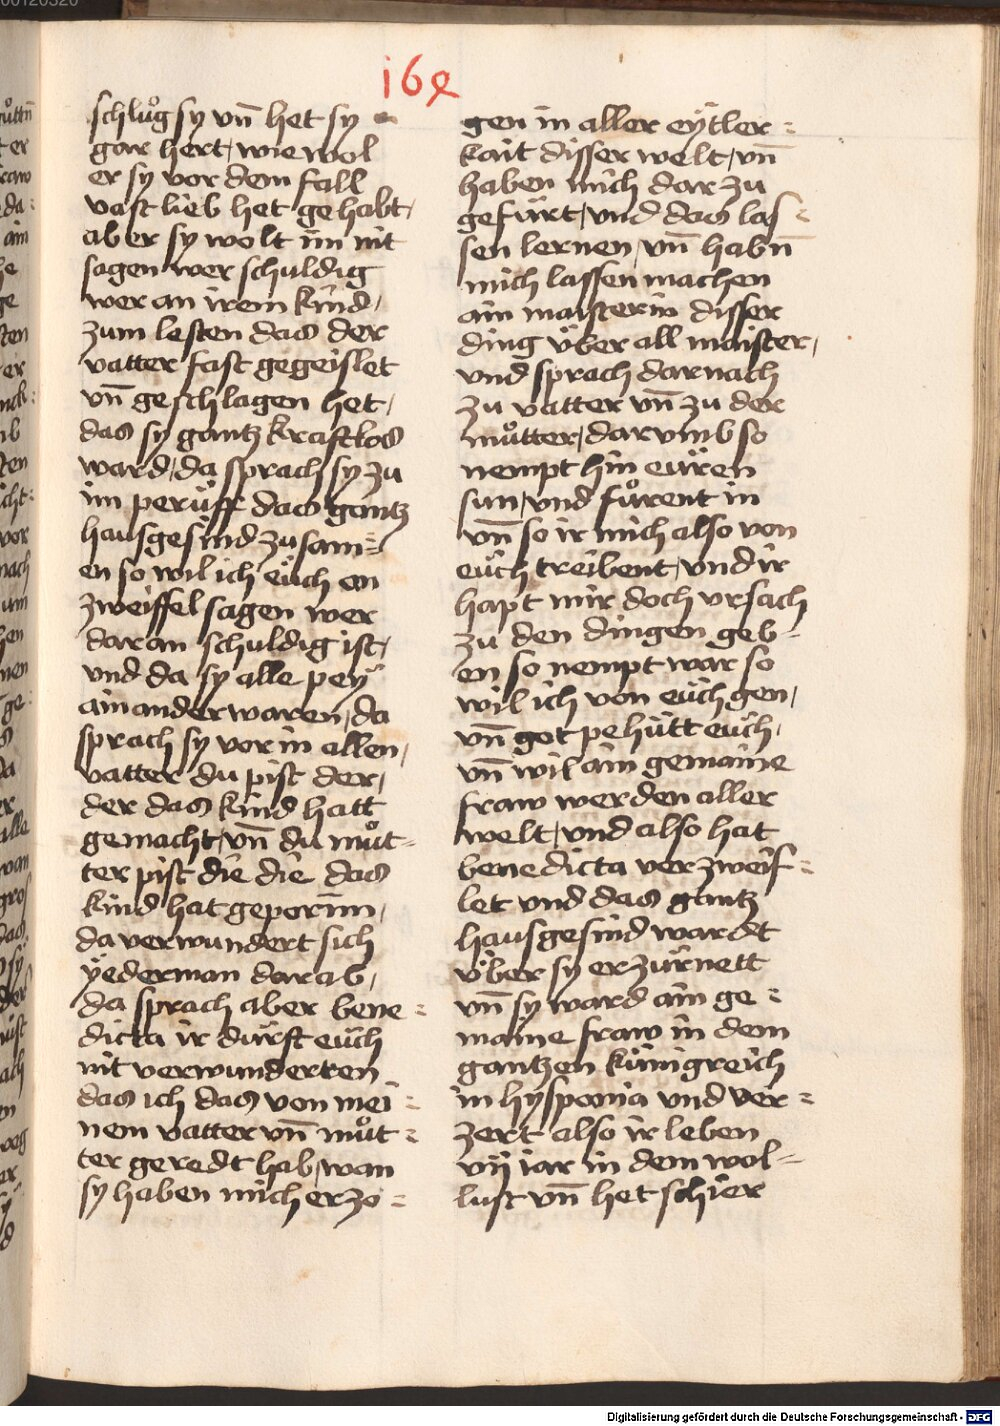 i6ꝝ
schlůg sy vn̄ het sy
gar hert, wie wol
er sy vor dem fall
vast lieb het gehabt,
aber sy wolt im nit
sagen wer schuldig
wer an irem kind,
zum lesten das der
vatter fast gegeislet
vn̄ geschlagen het,
das sy gantz kraftlos
ward, da sprach sy zu
im perüff das gantz
hausgesind zusam=
en so wil ich eüch on
zweiffel sagen wer
daran schuldig ist,
vnd da sy alle peÿ
ainander waren, da
sprach sy vor in allen,
vatter du pist der,
der das kind hatt
gemacht, vn̄ du můt=
ter pist die die das
kind hat geporinn,
da verwundert sich
ÿederman darab,
da sprach aber bene=
dicta ir dürft eüch
nit verwunderten
das ich das von mei=
nem vatter vn̄ můt=
ter geredt hab, wan
sy haben mich erzo=
gen in aller eÿtler=
kait disser welt, vn̄
haben mich dar zu
gefürt, vnd das las=
sen lernen, vn̄ habn̄
mich lassen machen
ain maisterin disser
ding über all maister,
vnd sprach darnach
zu vatter vn̄ zu der
můtter, darvmb so
nempt hin eüren
sun, vnd fůrent in
vn̄ so ir mich also von
eüch treibent, vnd ir
hapt mir doch vrsach
zu den dingen geb=
en so nempt war so
wil ich von eüch gen,
vn̄ got pehütt eüch,
vn̄ wil ain gemaine
fraw werden aller
welt, vnd also hat
benedicta verzweif=
let vnd das gantz
hausgesind wardt
über sy erzürnett
vn̄ sy ward ain ge=
maine fraw in dem
gantzen künigreich
in hysponia vnd ver=
zert also ir leben
vij iar in dem wol=
lust vn̄ het schier
Digitalisierung gefördert durch die Deutsche Forschungsgemeinschaft - DFG